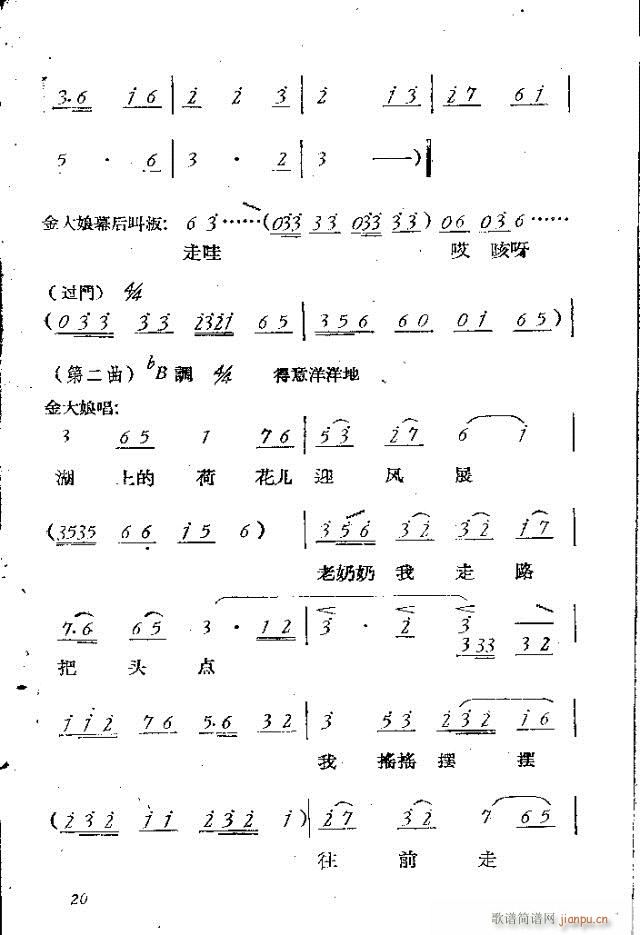 3·6 i 6 | 2 2 3 | 2 i 3 | 2 7 6 i |
5 · 6 | 3 · 2 | 3 — )
金大娘幕后叫板: 6 3 ······ ( 033 33 033 33 ) 06 036 ······
走哇 哎 咳呀
(过門) 4/4
( 0 3 3 3 3 2321 6 5 | 3 5 6 6 0 0 i 6 5 ) |
(第二曲) bB 調 4/4 得意洋洋地
金大娘唱:
3 6 5 1 7 6 | 5 3 2 7 6 i |
湖 上的 荷 花儿 迎 风 展
( 3535 6 6 i 5 6 ) | 3 5 6 3 2 3 2 i 7 |
老奶奶 我 走 路
7·6 6 5 3 · 1 2 | 3 · 2 3 3 33 3 2 |
把 头 点
i i 2 7 6 5·6 3 2 | 3 5 3 2 3 2 i 6 |
我 摇摇 摆 摆
( 2 3 2 i i 2 3 2 i ) | 2 7 3 2 7 6 5 |
往 前 走
20
歌谱简谱网 jianpu.cn